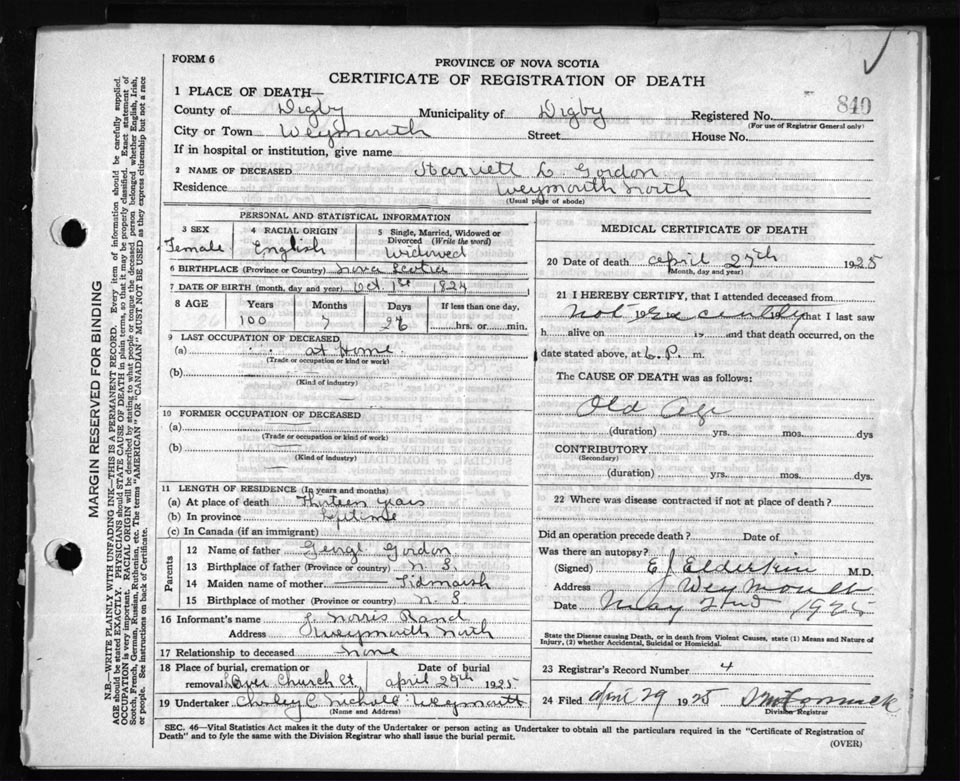 FORM 6
PROVINCE OF NOVA SCOTIA
CERTIFICATE OF REGISTRATION OF DEATH
840
1 PLACE OF DEATH—
County of Digby Municipality of Digby Registered No.
(For use of Registrar General only)
City or Town Weymouth Street House No.
If in hospital or institution, give name
2 NAME OF DECEASED Harriett L. Gordon
Residence Weymouth North
(Usual place of abode)
PERSONAL AND STATISTICAL INFORMATION
3 SEX 4 RACIAL ORIGIN 5 Single, Married, Widowed or Divorced (Write the word)
Female English Widowed
6 BIRTHPLACE (Province or Country) Nova Scotia
7 DATE OF BIRTH (month, day and year) Oct. 1st 1824
8 AGE Years Months Days If less than one day,
100 7 26 hrs. or min.
9 LAST OCCUPATION OF DECEASED
(a) at Home
(Trade or occupation or kind of work)
(b)
(Kind of industry)
10 FORMER OCCUPATION OF DECEASED
(a)
(Trade or occupation or kind of work)
(b)
(Kind of industry)
11 LENGTH OF RESIDENCE (In years and months)
(a) At place of death Thirteen years
(b) In province Lifetime
(c) In Canada (if an immigrant)
Parents
12 Name of father George Gordon
13 Birthplace of father (Province or country) N. S.
14 Maiden name of mother Tidmarsh
15 Birthplace of mother (Province or country) N. S.
16 Informant's name J. Norris Rand
Address Weymouth North
17 Relationship to deceased None
18 Place of burial, cremation or removal Church Date of burial April 29th 1925
19 Undertaker Charley C Nichols Weymouth
(Name and Address)
MEDICAL CERTIFICATE OF DEATH
20 Date of death April 27th 1925
(Month, day and year)
21 I HEREBY CERTIFY, that I attended deceased from
not recently that I last saw
h alive on is and that death occurred, on the
date stated above, at 6. P. m.
The CAUSE OF DEATH was as follows:
Old Age
(duration) yrs. mos. dys
CONTRIBUTORY
(Secondary)
(duration) yrs. mos. dys
22 Where was disease contracted if not at place of death?
Did an operation precede death? Date of
Was there an autopsy?
(Signed) E. J. Elderkin M.D.
Address Weymouth
Date May 2nd 1925
State the Disease causing Death, or in death from Violent Causes, state (1) Means and Nature of
Injury, (2) whether Accidental, Suicidal or Homicidal.
23 Registrar's Record Number 4
24 Filed April 29 1925
Division Registrar
SEC. 46—Vital Statistics Act makes it the duty of the Undertaker or person acting as Undertaker to obtain all the particulars required in the "Certificate of Registration of
Death" and to fyle the same with the Division Registrar who shall issue the burial permit.
(OVER)
MARGIN RESERVED FOR BINDING
N.B.—WRITE PLAINLY WITH UNFADING INK—THIS IS A PERMANENT RECORD. Every item of information should be carefully supplied.
AGE should be stated EXACTLY. PHYSICIANS should STATE CAUSE OF DEATH in plain terms, so that it may be properly classified. Exact statement of
OCCUPATION is very important. RACIAL ORIGIN will be described by stating to what people or tongue the deceased person belonged whether English, Irish,
Scotch, French, German, Russian, Ruthenian, etc. The terms "AMERICAN" OR "CANADIAN" MUST NOT BE USED as they express citizenship but not a race
or people. See instructions on back of Certificate.